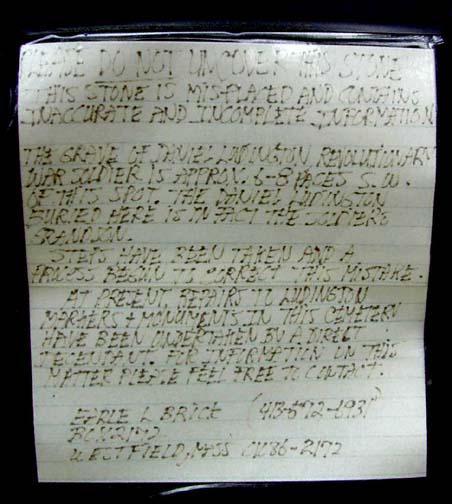 PLEASE DO NOT UNCOVER THIS STONE
THIS STONE IS MISPLACED AND CONTAINS
INACCURATE AND INCOMPLETE INFORMATION
THE GRAVE OF DANIEL LUDINGTON REVOLUTIONARY
WAR SOLDIER IS APPROX. 6-8 PACES S.W.
OF THIS SPOT. THE DANIEL LUDINGTON
BURIED HERE IS IN FACT THE SOLDIERS
GRANDSON.
STEPS HAVE BEEN TAKEN AND A
PROCESS BEGUN TO CORRECT THIS MISTAKE.
AT PRESENT, REPAIRS TO LUDINGTON
MARKERS + MONUMENTS IN THIS CEMETERY
HAVE BEEN UNDERTAKEN BY A DIRECT
DECENDANT. FOR INFORMATION ON THIS
MATTER PLEASE FEEL FREE TO CONTACT.
EARLE L BRICE
BOX 2172
WESTFIELD, MASS 01086-2172